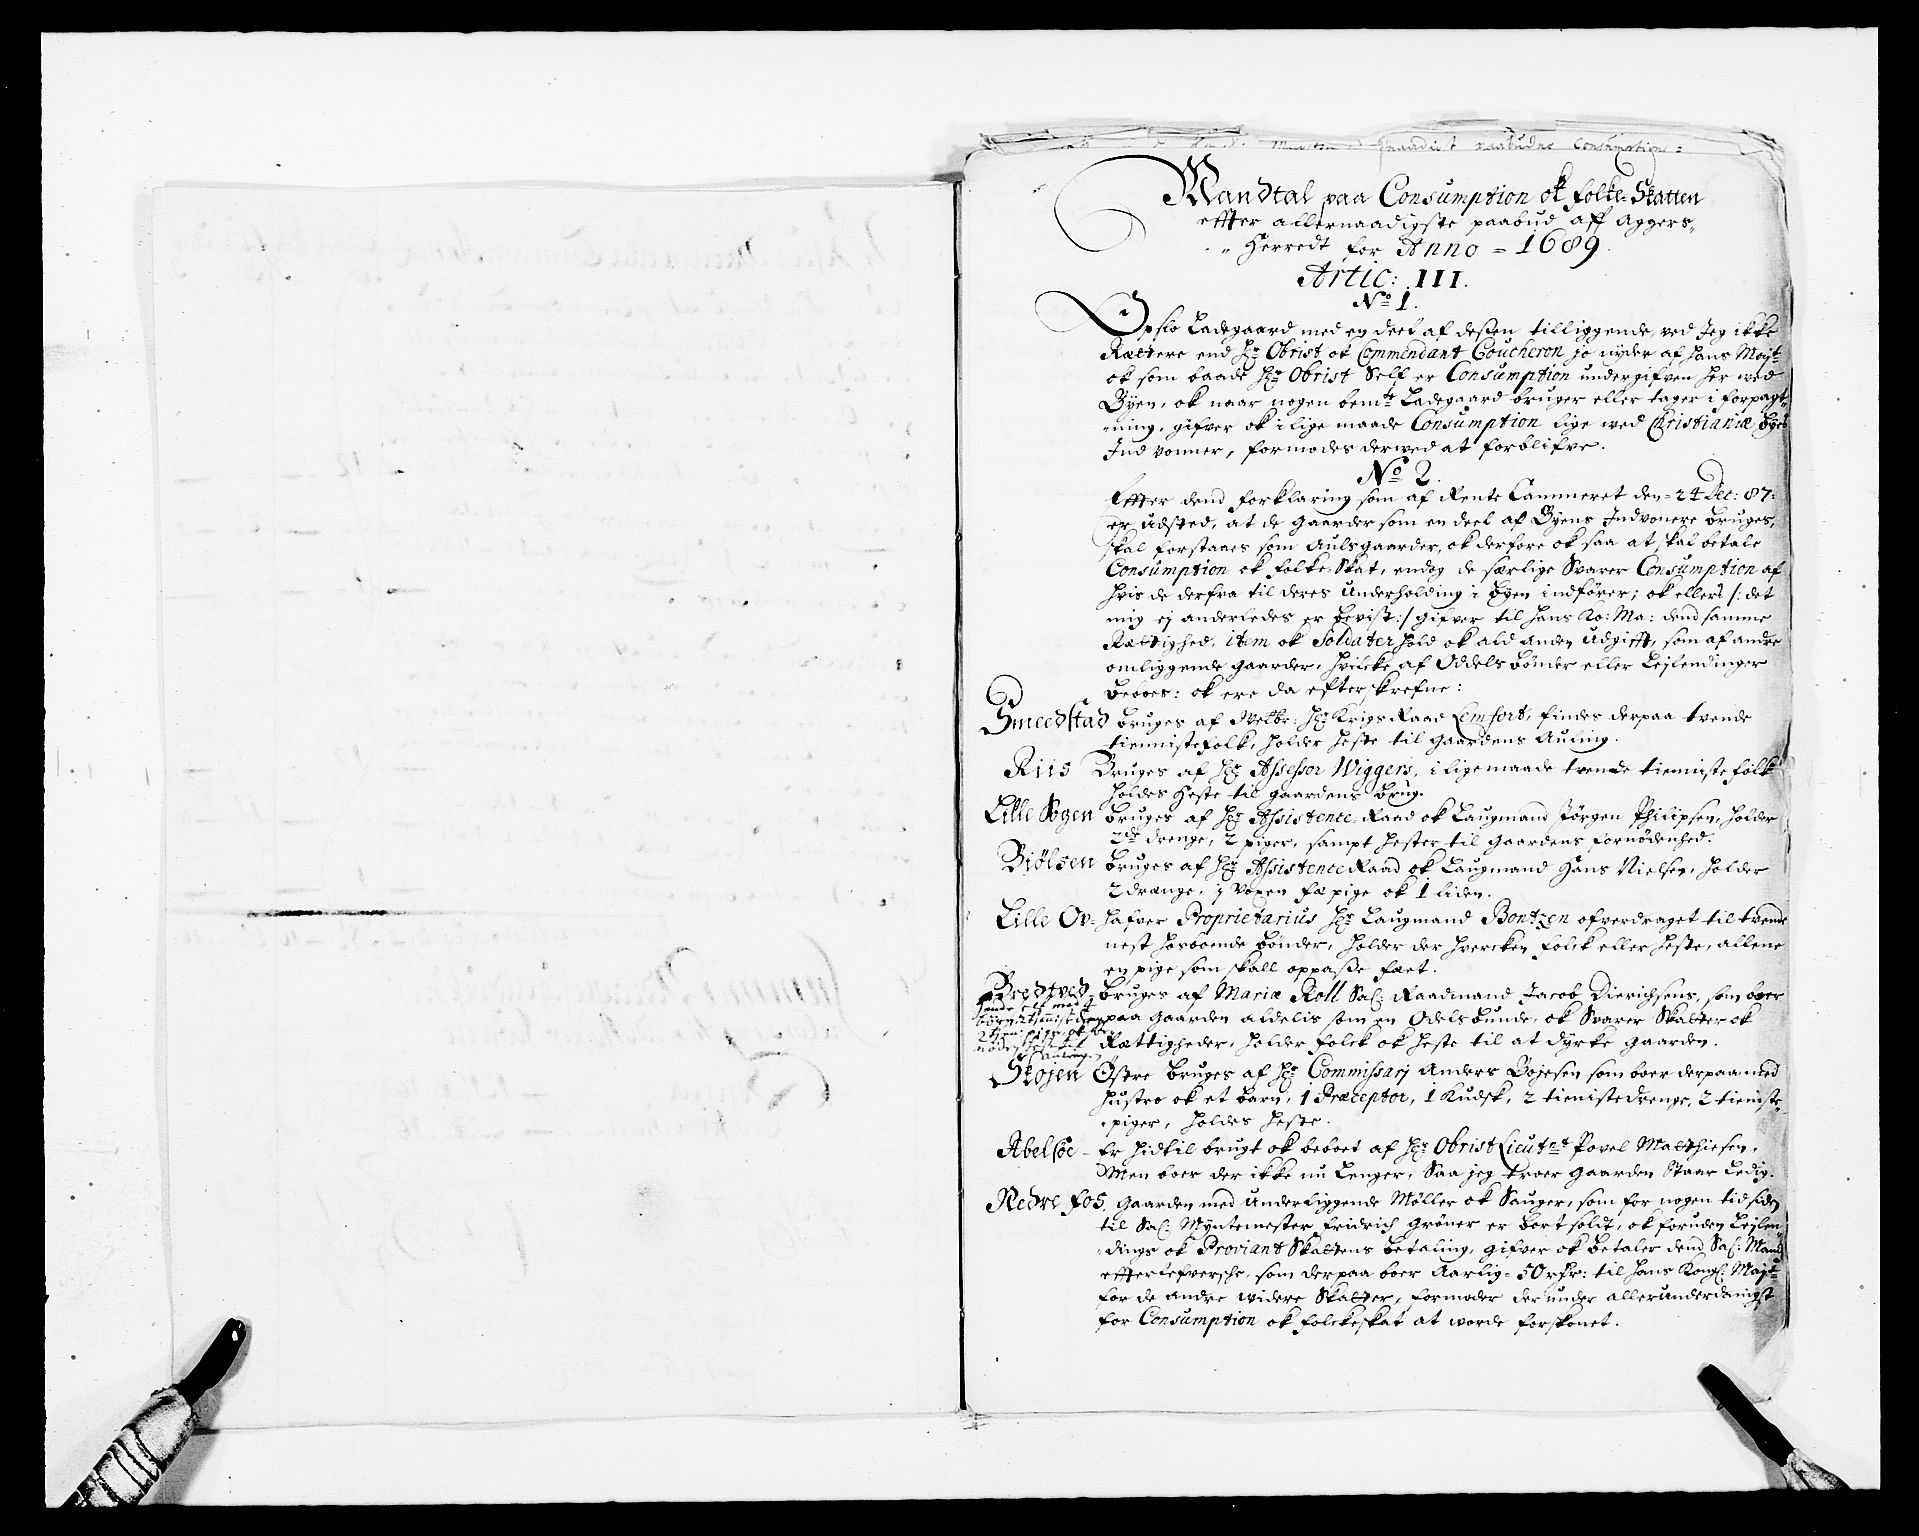 Mandtal paa Consumption ok folke-Skatten
effter allernaadigste paabud aff Aggers„
„Herredt for Anno = 1689.
Artic: III.
No 1.
Opslo Ladegaard med en deel af dessen tilliggende, ved Jeg ikke
Rættere end Hr: Obrist ok Commendant Coucheron jo nyder af Hans Mayt:
ok som baade Hr: Obrist Self er Consumption undergifven her wed
Byen, ok naar nogen bemte Ladegaard bruger eller tager i forpagt„
„ning, gifver ok i lige maade Consumption lige wed Christianiæ Byes
Indvonner, formodes derwed at forblifve.
No 2.
Effter dend forklaring som af Rente Cammeret den = 24 Dec: 87:
er udsted, at de gaarder som en deel af Byens Indvonere bruges,
skal forstaaes som Aulsgaarder, ok derfore ok saa at skal betale
Consumption ok folke Skat, endog de særlige Svarer Consumption af
hvis de derfra til deres underholding i Byen indfører; ok ellers /: det
mig ej anderledes er bevist :/ gifver til Hans Ko: Ma: dend samme
Rættighed, item ok Soldater hold ok ald anden udgifft, som af andre
omliggende gaarder, hvilcke af Oddels bønder eller Lejlendinger
beboes: ok ere da efterskrefne:
Smeedstad bruges af Welbr: Hr: Krigs Raad Lemfort, findes derpaa tvende
tiennistefolk, holder heste til gaardens Auling.
Riis Bruges af Hr: Assessor Wiggers, i lige maade tvende tienniste folk
holdes heste til gaardens brug.
Lille Sogen bruges af Hr: Assistence-Raad ok Laugmand Jørgen Philipsen, holder
2de drenge, 2 piger, sampt hester til gaardens fornødenhed.
Biølsen bruges af Hr: Assistence Raad ok Laugmand Hans Nielsen, holder
2 drænge, 1 voxen fæpige ok 1 liden.
Lille Ov= hafver Proprietarius Hr: Laugmand Bontzen ofverdraget til tvende
nest hosboende bønder, holder der hvercken folck eller heste, allene
en pige som skall oppasse fæet.
Bredtved- bruges af Mariæ Roll Sal: Raadmand Jacob Dierichsens, som boer
paa gaarden aldelis som en Odels bunde, ok Svarer Skatter ok
Rættigheder, holder folck ok heste til at dyrke gaarden.
Skøjen Østre bruges af Hr: Commissarj Anders Bojesen som boer derpaa med
hustro ok et barn, 1 Præceptor, 1 Kudsk, 2 tieniste drenge, 2 tieniste„
„piger, holdes heste.
Abelsøe - Er hidtil brugt ok beboet af Hr: Obrist Lieutnt Povel Matthiesen,
Men boer der ikke nu lenger, saa jeg troer gaarden staar ledig.
Nedre fos, gaarden med underliggende Møller ok Sauger, som for nogen tid siden
til Sal: Myntemester fridrich Grøner er bortsoldt, ok foruden Lejlen„
„dings ok Proviant Skattens betaling, gifver ok betaler dend Sal: Mands
effterlefversche, som derpaa boer Aarlig = 50 rhr: til Hans Kongl: Mayt:
for de andre widere Skatter, formoder derunder allerunderdanigst
for Consumption ok folckeskat at worde forskonet.